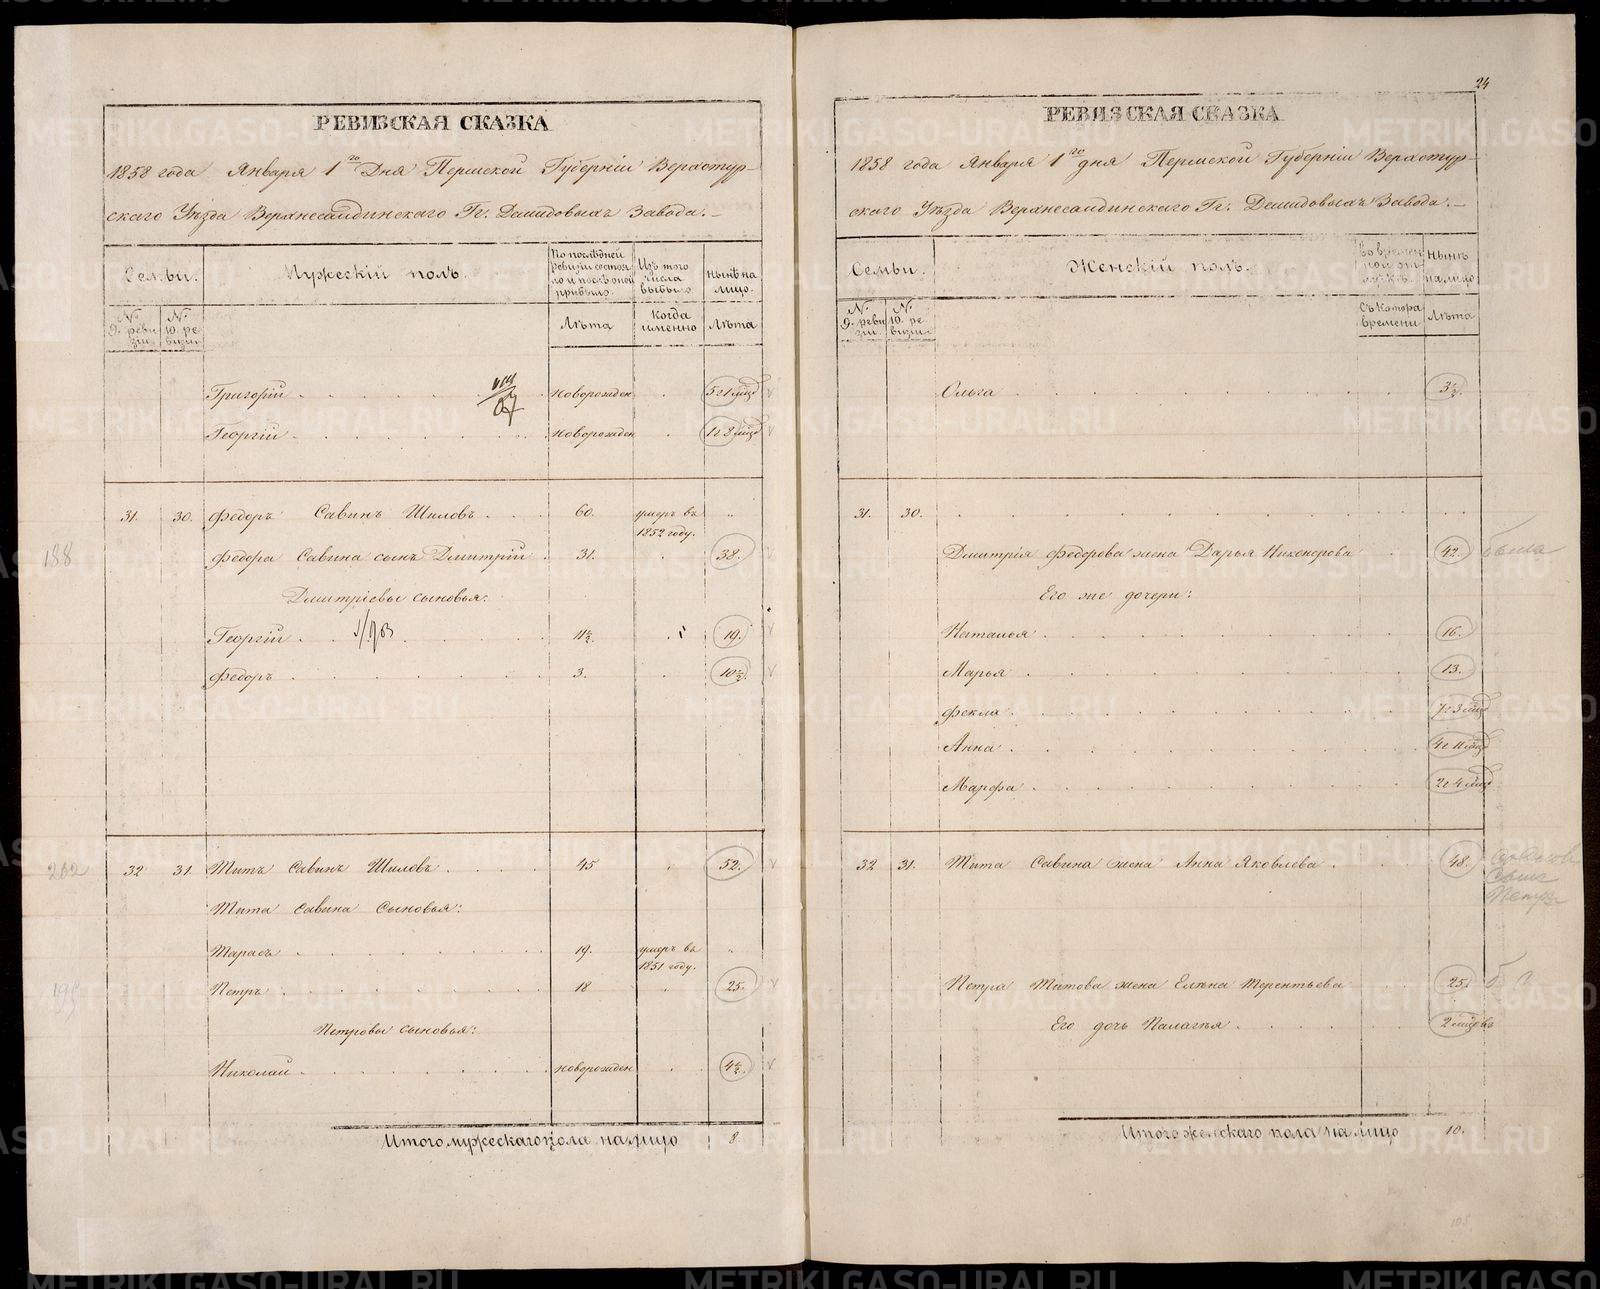 РЕВИЗСКАЯ СКАЗКА
1858 года Января 1го Дня Пермской Губерніи Верхотур-
скаго Уѣзда Верхнесалдинскаго Гг. Демидовыхъ Завода.-
Семьи.
Мужескій полъ.
По послѣдней ревизіи состояло и послѣ оной прибыло.
Изъ того числа выбыло
Нынѣ на лицо.
№ 9. ревизіи
№ 10. ревизіи
Лѣта
Когда именно
Лѣта
Григорій новорожден 5 г 1 мѣд
Георгій новорожден 1 г 8 мѣд
31. 30. Федоръ Савинъ Шиловъ 60. умеръ въ 1852 году. "
188 Федора Савина сынъ Дмитрій 31. 38.
Дмитріевы сыновья:
Георгій 11½. 19.
Федоръ 3. 10½.
262 32 31. Титъ Савинъ Шиловъ 45 52.
Тита Савина Сыновья:
Тарасъ 19. умеръ въ 1851 году. "
195 Петръ 18 25.
Петровы сыновья:
Николай новорожден 4½.
Итого мужескаго пола на лицо 8.
24
РЕВИЗСКАЯ СКАЗКА
1858 года Января 1го дня Пермской Губерніи Верхотур-
скаго Уѣзда Верхнесалдинскаго Гг. Демидовыхъ Завода.-
Семьи.
Женскій полъ.
Во временной отлучкѣ.
Нынѣ на лицо
№ 9. ревизіи
№ 10. ревизіи
Съ котора времени
Лѣта
Ольга 3½.
31. 30.
Дмитрія Федорова жена Дарья Никонорова 42. была
Его же дочери:
Наталья 16.
Марья 13.
Фекла 7 г 3 мѣд
Анна 4 г 11 мѣд
Марфа 2 г 4 мѣд
32 31. Тита Савина жена Анна Яковлева 48.
Сына
Петра
Петра Титова жена Елена Терентьева 25.
Его дочь Палагѣя 2 мѣсовъ
Итого женскаго пола на лицо 10.
105
METRIKI.GASO-URAL.RU